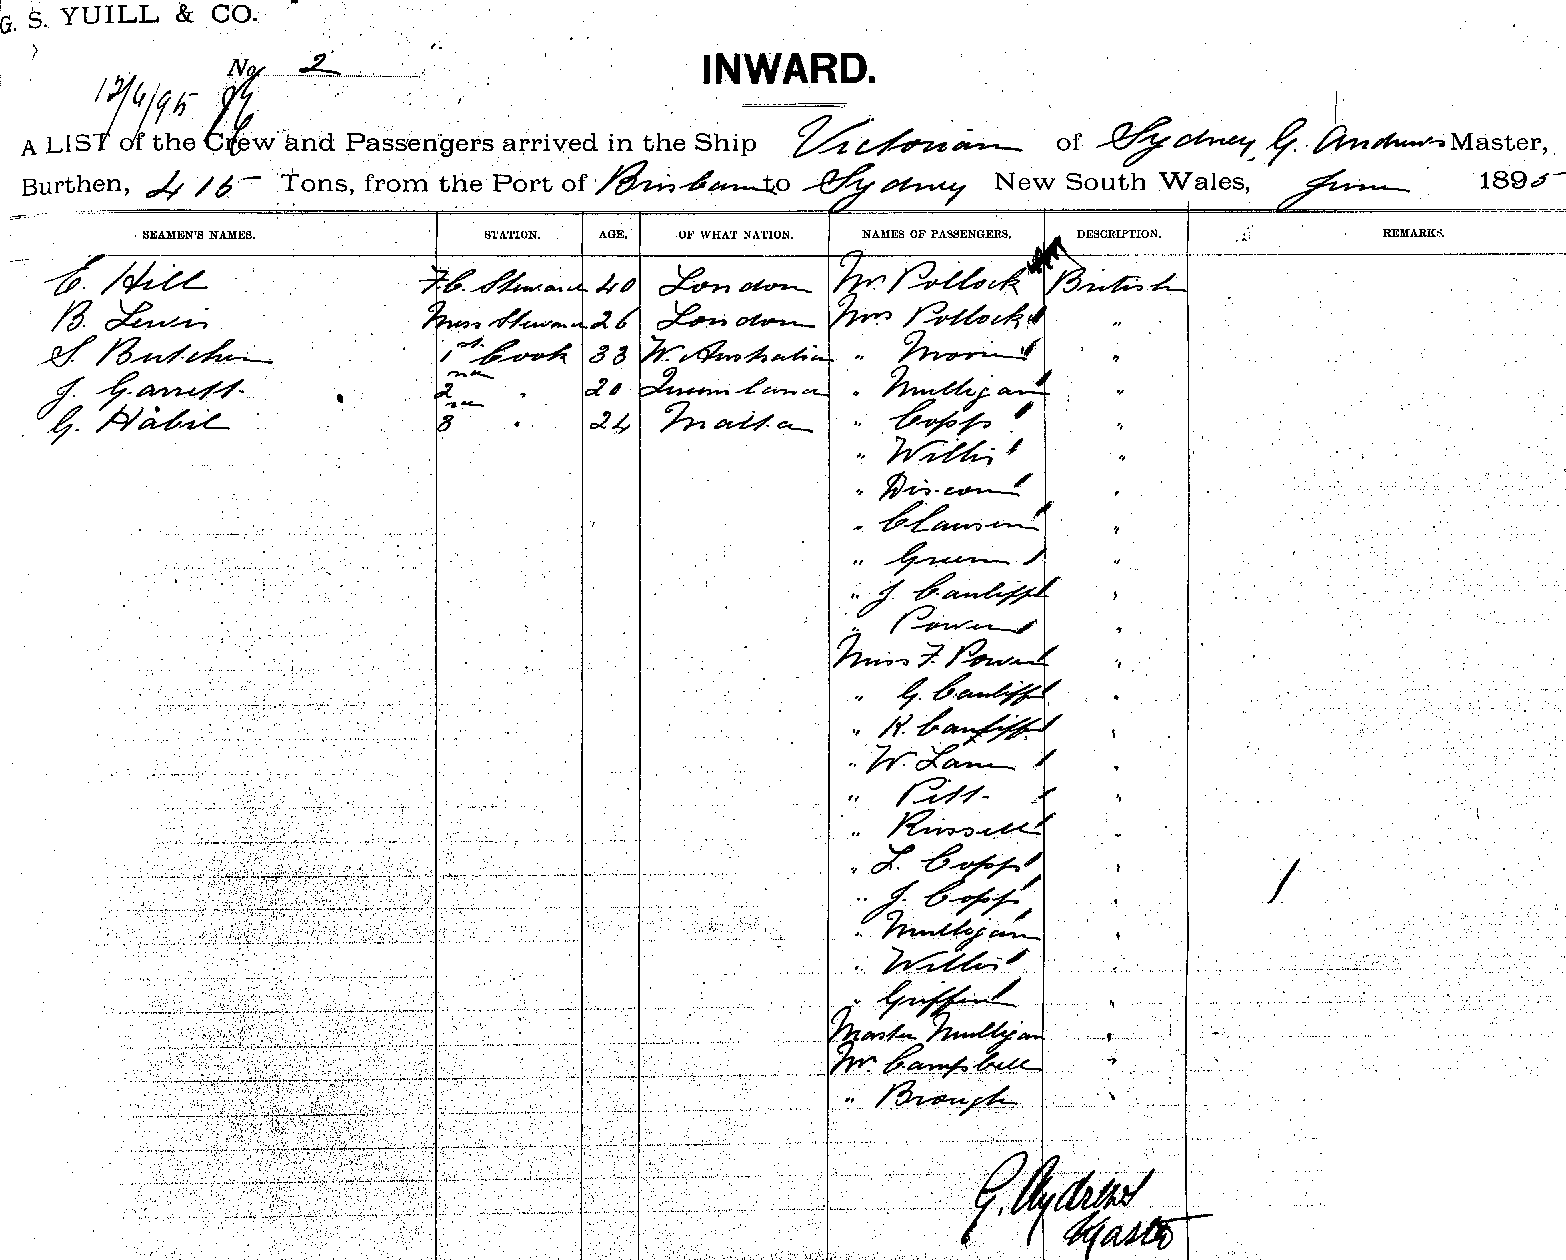 G. S. YUILL & CO.
No 2
12/6/95
INWARD.
A LIST of the Crew and Passengers arrived in the Ship Victorian of Sydney, G. Andrews Master,
Burthen, 415 Tons, from the Port of Brisbane to Sydney New South Wales, June 1895
SEAMEN'S NAMES. STATION. AGE. OF WHAT NATION. NAMES OF PASSENGERS. DESCRIPTION. REMARKS.
E. Hill F.C. Steward 40 London Mr Pollock British
B. Lewis Mess Steward 26 London Mrs Pollock "
S. Butcher 1st Cook 33 W. Australia " "
J. Garrett 2nd " 20 Queensland " Mulligan "
G. Habil 3rd " 24 Malta " Copp "
" Willis "
" "
" Clausen "
" Green "
" J. Cauliff "
" Power "
Miss F. Power "
" G. Cauliff "
" K. Cauliff "
" W. Lane "
" Pitt "
" Russell "
" L. Copp "
" J. Copp "
" Mulligan "
" Willis "
" Griffin "
Master Mulligan "
Mr Campbell "
" Brough "
G. Andrews
Master